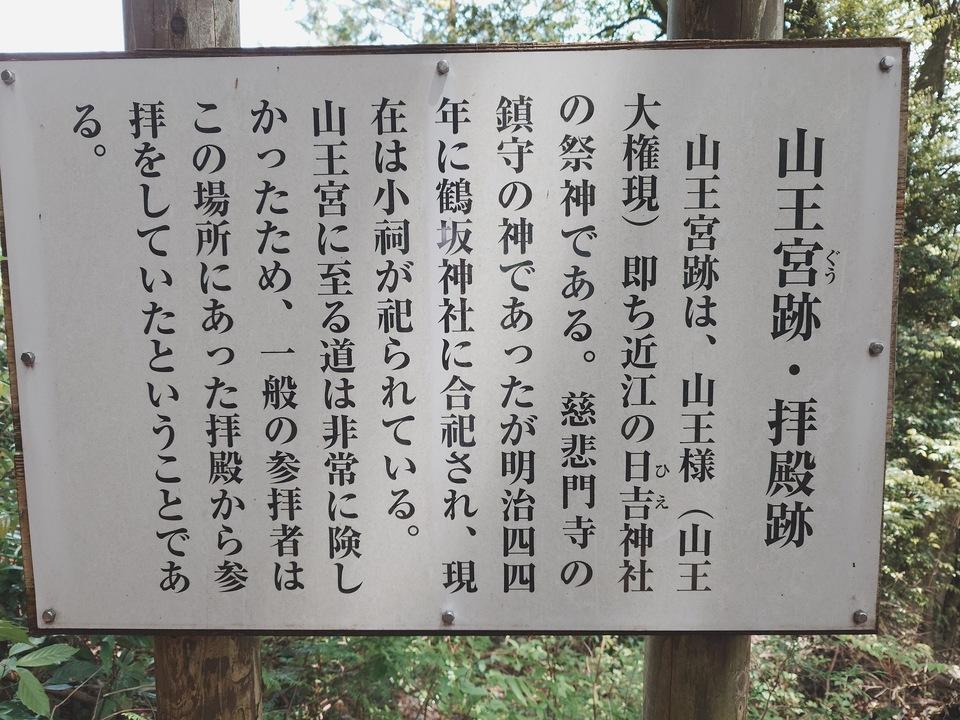 山王宮跡・拝殿跡
ぐう
山王宮跡は、山王様（山王
大権現）即ち近江の日吉神社
ひえ
の祭神である。慈悲門寺の
鎮守の神であったが明治四四
年に鶴坂神社に合祀され、現
在は小祠が祀られている。
山王宮に至る道は非常に険し
かったため、一般の参拝者は
この場所にあった拝殿から参
拝をしていたということであ
る。